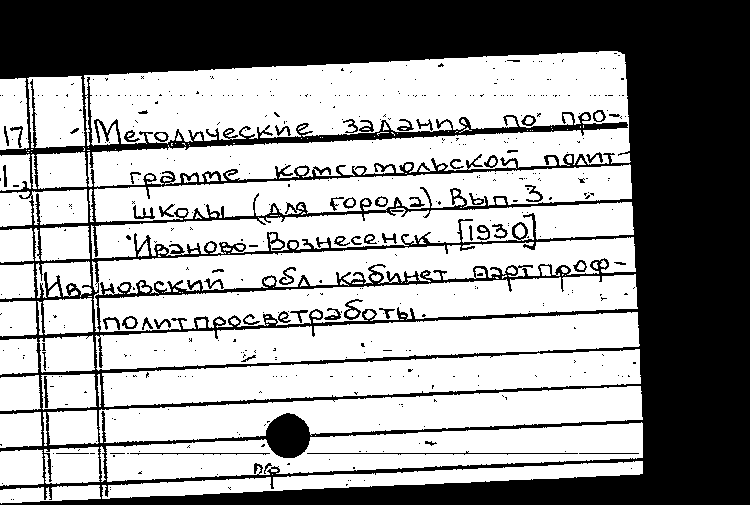 17 Методические задания по про-
грамме комсомольской полит-
школы (для города). Вып. 3.
Иваново-Вознесенск, [1930]
Ивановский обл. кабинет партпроф-
политпросветработы.